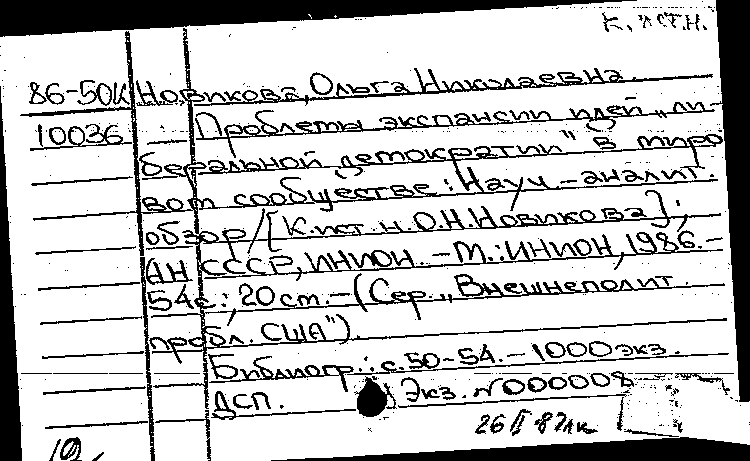 К. ист.н.
86-50К Новикова, Ольга Николаевна.
10036 Проблемы экспансии идей „ли-
беральной демократии" в миро
вом сообществе: Науч.-аналит.
обзор/[К.ист.н. О.Н.Новикова];
АН СССР, ИНИОН. - М.: ИНИОН, 1986.-
54с.; 20 ст. - (Сер. „Внешнеполит.
пробл. США").
Библиогр.: с.50-54. - 1000 экз.
ДСП. Экз. №000008
26 II 87